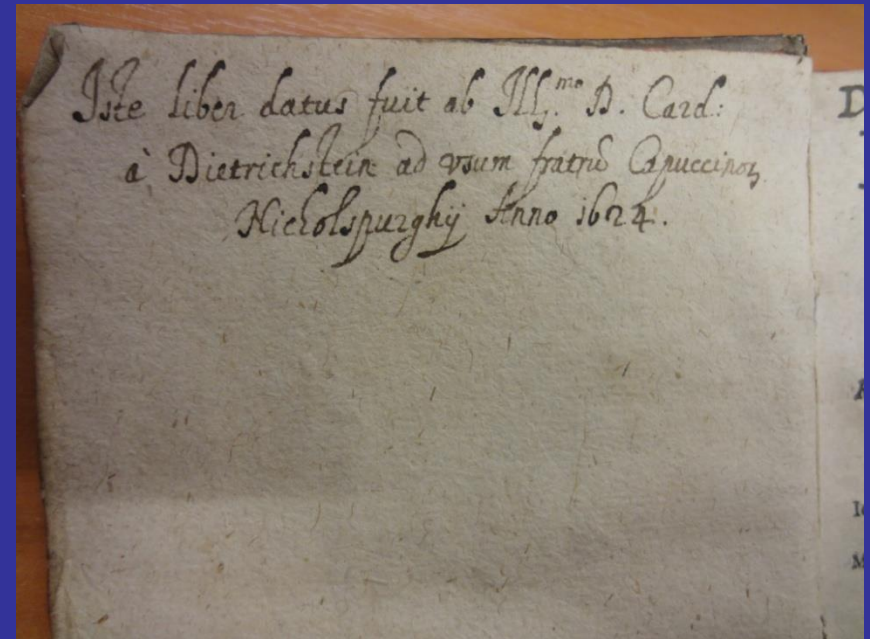 Iste liber datus fuit ab Ill.mo D. Card:
à Dietrichstein ad vsum fratrū Capuccinoꝝ
Nicholspurghij Anno 1624.
D